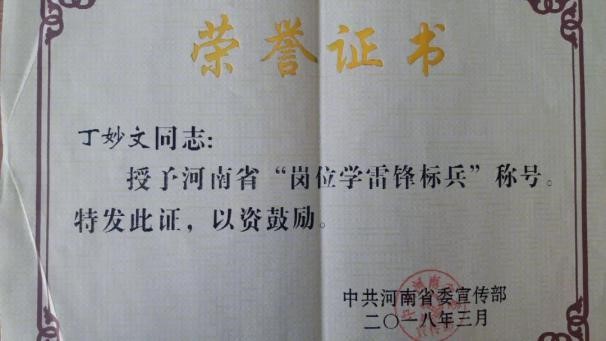 荣誉证书
丁妙文同志：
授予河南省“岗位学雷锋标兵”称号。
特发此证，以资鼓励。
中共河南省委宣传部
二〇一八年三月